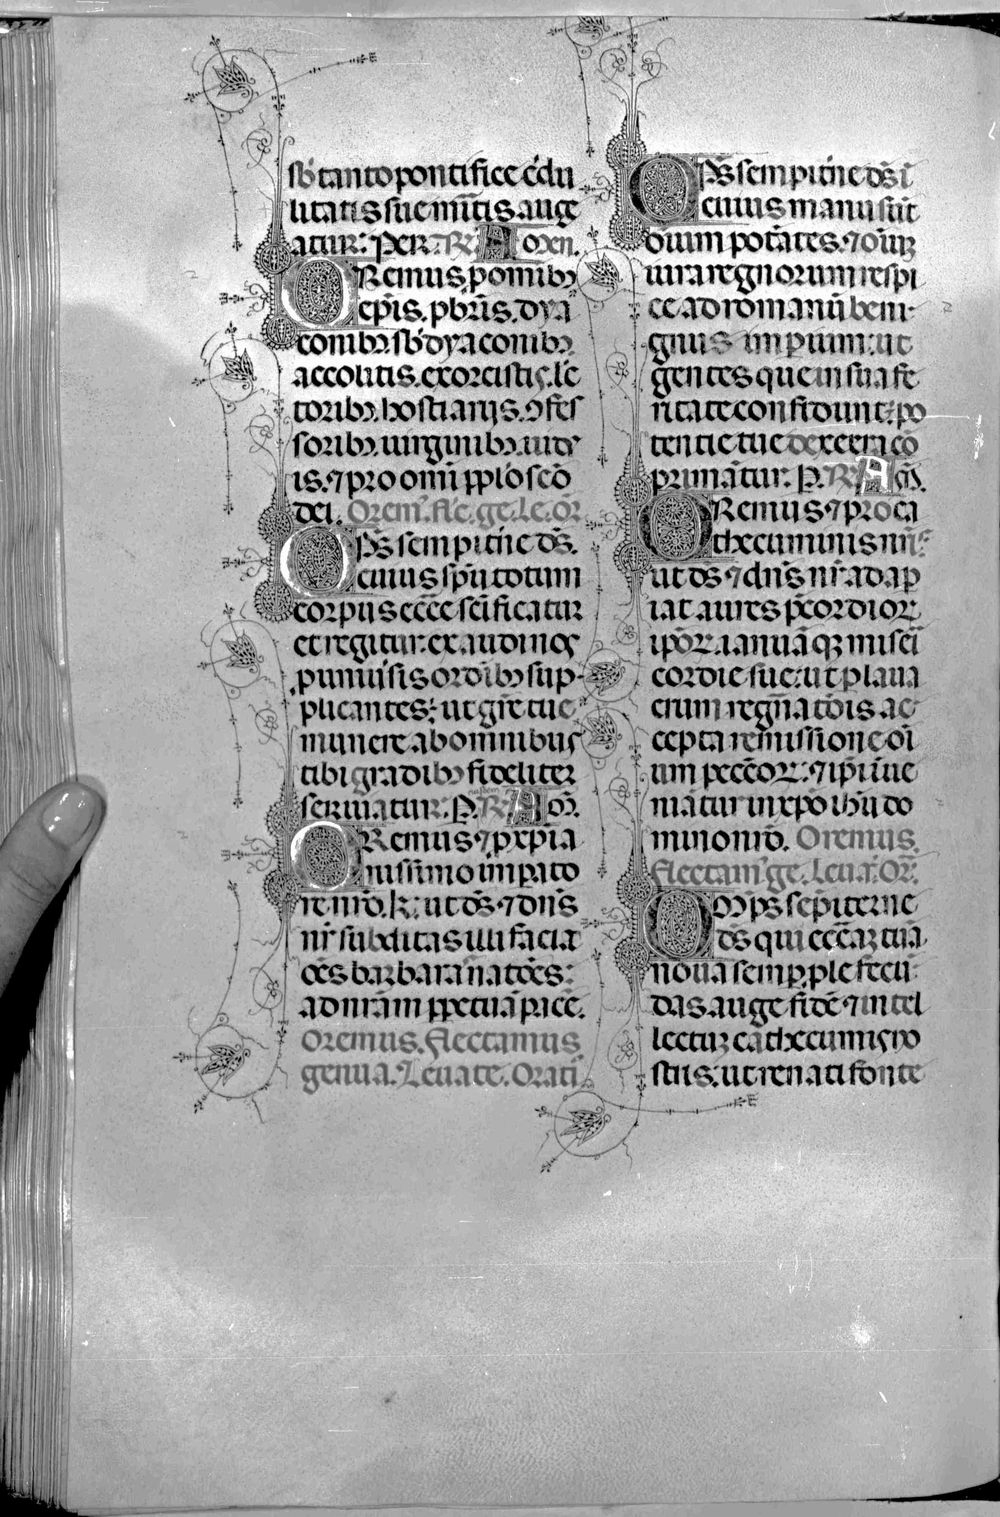 sb̃ tanto pontifice c̃du
litatis sue m̃itis auge
atur: Per. R̃ Amen.
Oremus. ⁊ p̃ om̃ibꝫ
epĩs. pb̃ris. dya
conibꝫ. sb̃dyaconibꝫ.
accolitis. exorcistis. lec̃
toribꝫ. hostiarijs. ꝯfes
soribꝫ. uirginibꝫ. uidu
is. ⁊ pro om̃i pp̃lo sc̃o
dei. Orem̃. Flc̃. ge. Le. or̃
Omp̃s sempit̃ne ds̃.
cuius sp̃u totum
corpus ecc̃e sc̃ificatur
et regitur. exaudi nos
p̃ uniũsis ordĩbꝫ sup-
plicantes: ut gr̃e tue
munere ab omnibus
tibi gradibꝫ fideliter
seruiatur. P. R̃ Am̃.
Oremus ⁊ p̃ xp̃ia
nissimo imp̃ato
re nr̃o. N. ut ds̃ ⁊ dns̃
nr̃ subditas illi faciat
oẽs barbaras natões:
ad nr̃am ꝑpetuã pacẽ.
Oremus. Flectamus
genua. Leuate. Orati
Omp̃s sempit̃ne ds̃ ĩ
cuius manu sũt
oĩum potãtes. ⁊ oĩuꝫ
iura regnorum respi
ce ad romanũ beni-
gnus imp̃ium: ut
gentes que in sua fe
ritate confidunt: po
tentie tue dextera cõ
primãtur. P. R̃ Am̃.
Oremus ⁊ pro ca
thecuminis nr̃is:
ut ds̃ ⁊ dns̃ nr̃ adap
iat aures p̃cordioꝝ
ip̃oꝝ. ianuãqꝫ miseri
cordie sue: ut p̃ laua
crum regñatõis ac
cepta remissione oĩ
um pecc̃oꝝ: ⁊ ip̃i ĩue
niãtur in xp̃o ihũ do
mino nr̃o. Oremus.
Flectam̃ ge. Leuat̃. Or̃.
Omp̃s sep̃iterne
ds̃ qui ecc̃aꝫ tuã
noua semper ple fecũ
das. auge fidẽ ⁊ intel
lectuꝫ cathecuminis no
stris: ut renati fonte